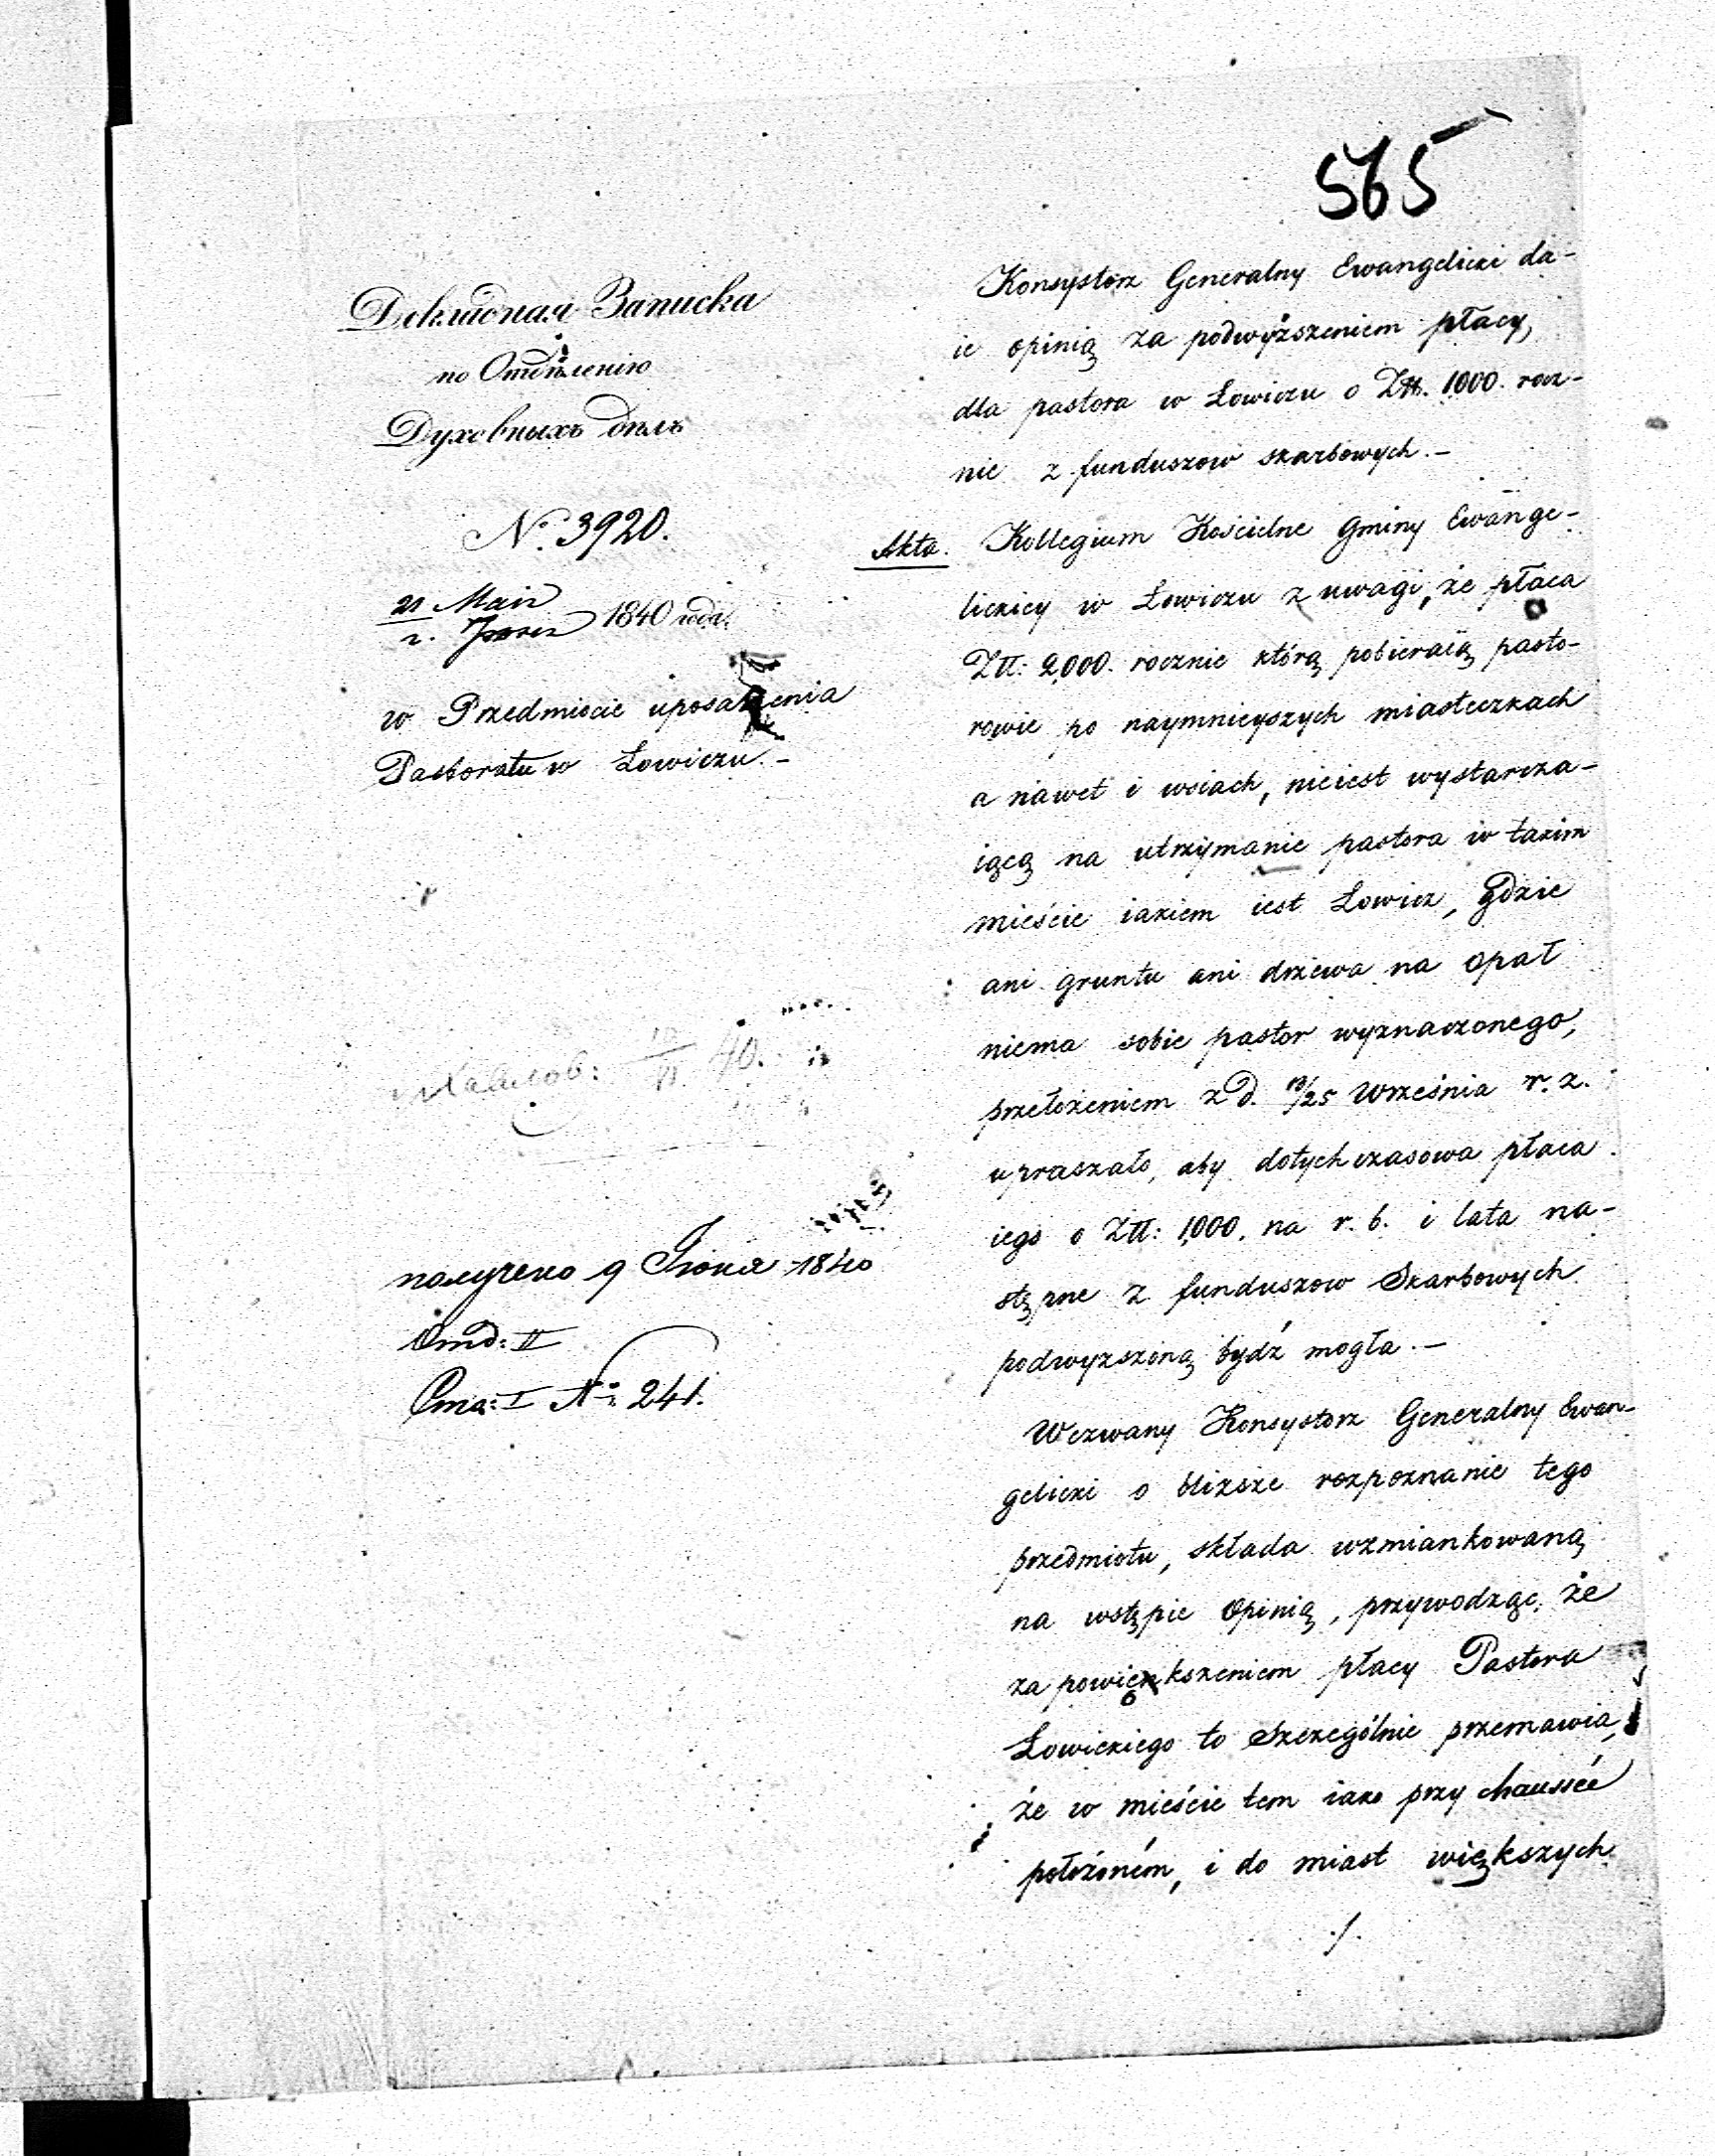 565
Докладная Записка
по Отдѣленію
Духовныхъ дѣлъ
N. 3920.
21 Мая
2. Іюня 1840 года.
w Przedmiocie uposażenia
Pastoratu w Łowiczu. -
40.
получено 9 Іюня 1840
Отд: II
I No 241.
Konsystorz Generalny Ewangelicki da-
ie opinią za podwyższeniem płacy,
dla pastora w Łowiczu o Złt. 1000. rocz-
nie z funduszow skarbowych. -
Akta. Kollegium Kościelne Gminy Ewange-
lickicy w Łowiczu z uwagi, że płaca
Złt: 2,000. rocznie którą pobieraią pasto-
rowie po naymnieyszych miasteczkach
a nawet i wsiach, nieiest wystarcza-
iącą na utrzymanie pastora w takim
mieście iakiem iest Łowicz, gdzie
ani gruntu ani drzewa na opał
niema sobie pastor wyznaczonego,
przełożeniem z d. 13/25 Września r. z.
upraszało, aby dotychczasowa płaca
iego o Złt: 1,000. na r. b. i lata na-
stępne z funduszow Skarbowych
podwyzszoną bydź mogła. -
Wezwany Konsystorz Generalny Ewan-
gelicki o bliższe rozpoznanie tego
przedmiotu, składa wzmiankowaną
na wstępie opinią, przywodząc, że
za powiększeniem płacy Pastora
Łowickiego to Szczególnie przemawia,
że w mieście tem iako przy chaussée
położoném, i do miast większych
./.